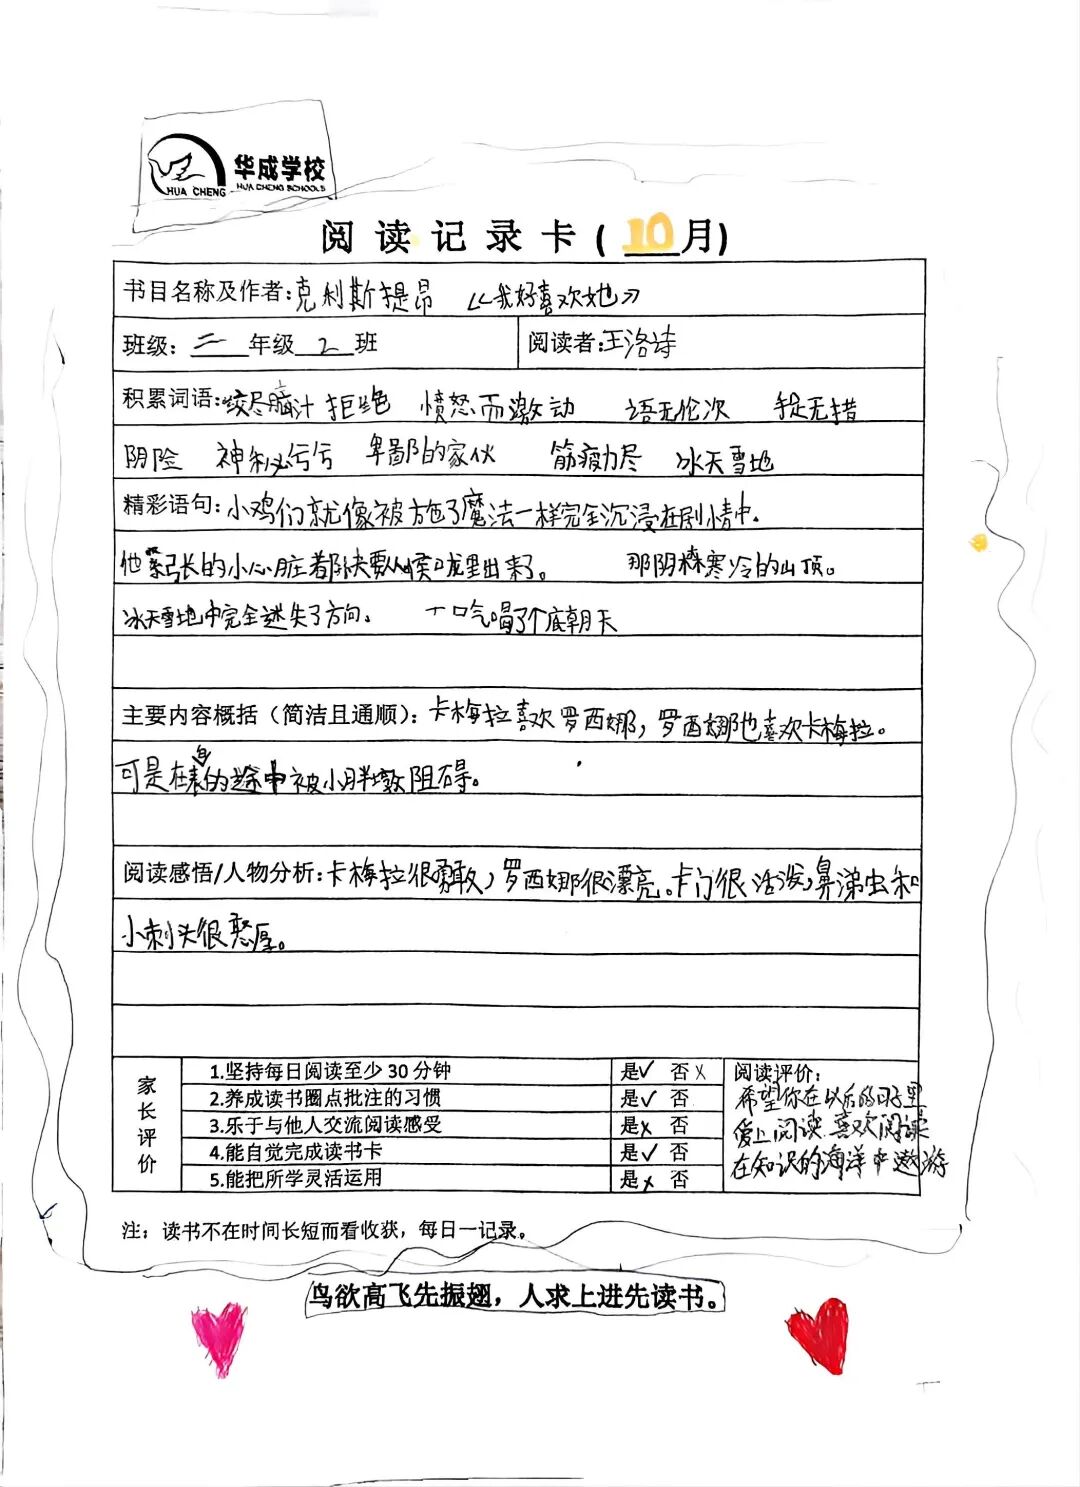 华成学校
HUA CHENG HUA CHENG SCHOOLS
阅读记录卡(10月)
书目名称及作者:克利斯提昂 《我好喜欢她》
班级:三年级2班 阅读者:王洛诗
积累词语:绞尽脑汁 拒绝 愤怒而激动 语无伦次 手足无措
阴险 神秘兮兮 卑鄙的家伙 筋疲力尽 冰天雪地
精彩语句:小鸡们就像被施了魔法一样完全沉浸在剧情中.
他紧张的小心脏都快要从喉咙里出来了。 那阴森寒冷的山顶。
冰天雪地中完全迷失了方向。 一口气喝了个底朝天
主要内容概括(简洁且通顺):卡梅拉喜欢罗西娜,罗西娜也喜欢卡梅拉。
可是在表白的途中被小胖墩阻碍。
阅读感悟/人物分析:卡梅拉很勇敢,罗西娜很漂亮。卡门很活泼,鼻涕虫和
小刺头很憨厚。
家长评价
1.坚持每日阅读至少30分钟 是✓ 否x
2.养成读书圈点批注的习惯 是✓ 否
3.乐于与他人交流阅读感受 是x 否
4.能自觉完成读书卡 是✓ 否
5.能把所学灵活运用 是x 否
阅读评价:
希望你在以后的日子里
爱上阅读 喜欢阅读
在知识的海洋中遨游
注:读书不在时间长短而看收获,每日一记录。
鸟欲高飞先振翅,人求上进先读书。